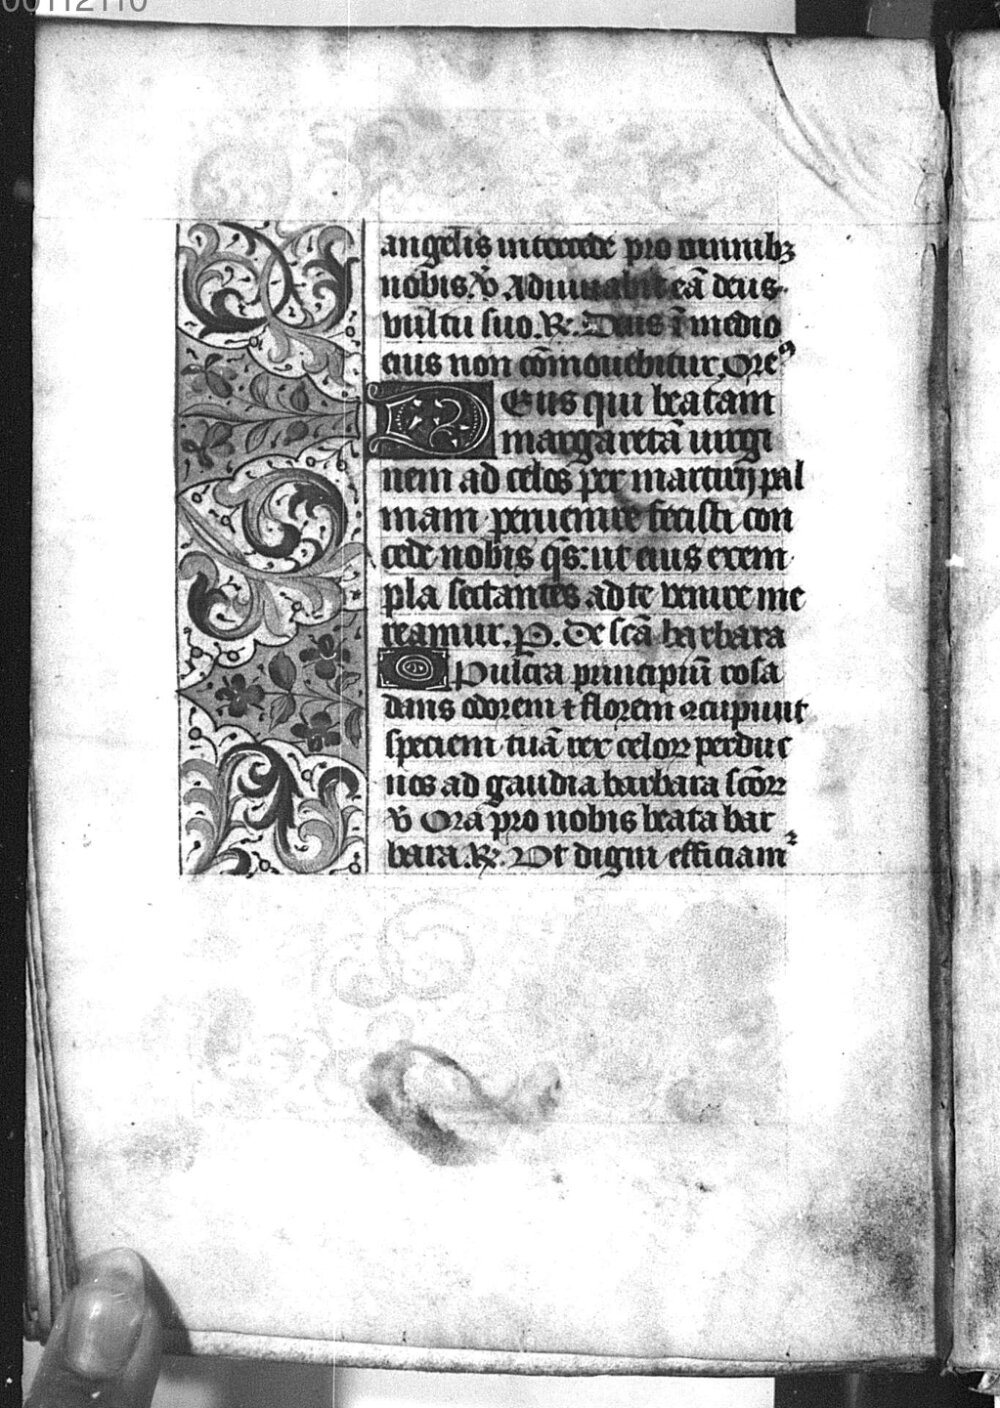 00112110
angelis intercede pro omnibꝫ
nobis. ℣ Adiuuabit eā deus
vultu suo. ℟. Deus ī medio
eius non cōmouebitur. Oreꝰ
Deus qui beatam
margaretā uirgi
nem ad celos per martirij pal
mam peruenire fecisti con
cede nobis q̄s: ut eius exem
pla sectantes ad te venire me
reamur. P. De scā barbara
O Pulcra principiū rosa
dans odorem ⁊ florem
speciem tuā rex celoꝝ perduc
nos ad gaudia barbara scōꝝ
℣ Ora pro nobis beata bar
bara. ℟. Vt digni efficiam᷑